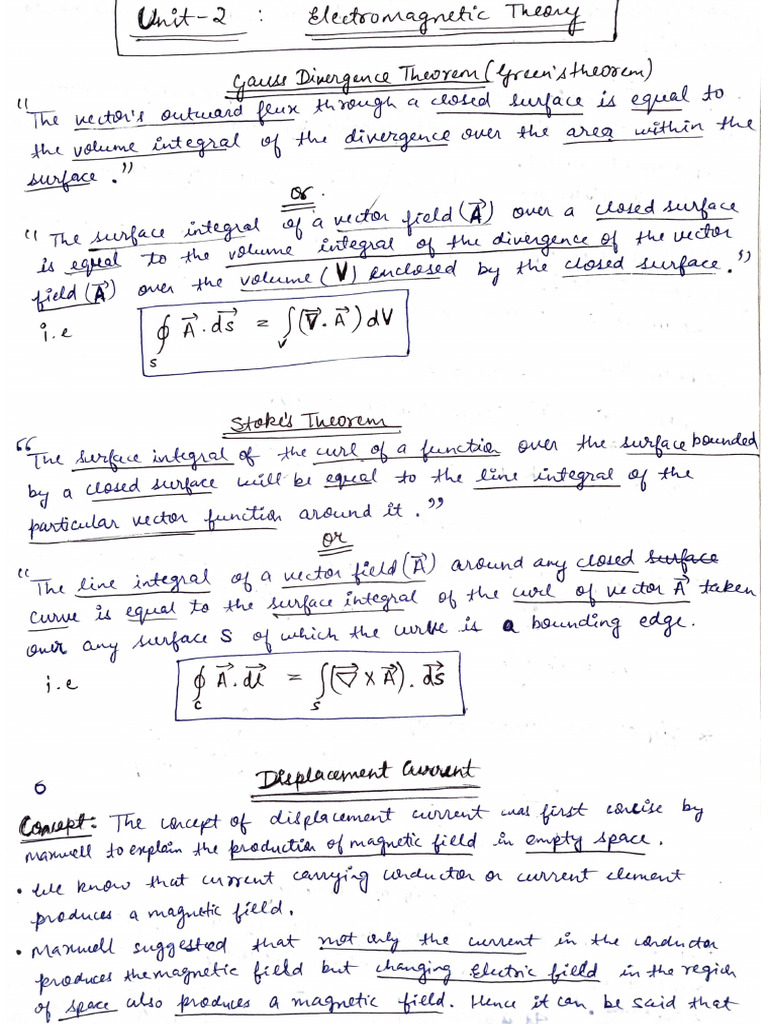 Unit-2 : Electromagnetic Theory
Gauss Divergence Theorem (Green's theorem)
"The vector's outward flux through a closed surface is equal to
the volume integral of the divergence over the area within the
surface."
or
"The surface integral of a vector field (A⃗) over a closed surface
is equal to the volume integral of the divergence of the vector
field (A⃗) over the volume (V) enclosed by the closed surface."
i.e ∮_S A⃗.ds⃗ = ∫_V (∇⃗.A⃗) dV
Stoke's Theorem
"The surface integral of the curl of a function over the surface bounded
by a closed surface will be equal to the line integral of the
particular vector function around it."
or
"The line integral of a vector field (A⃗) around any closed surface
curve is equal to the surface integral of the curl of vector A⃗ taken
over any surface S of which the curve is a bounding edge.
i.e ∮_C A⃗.dl⃗ = ∫_S (∇⃗ x A⃗). ds⃗
6 Displacement Current
Concept: The concept of displacement current was first concise by
maxwell to explain the production of magnetic field in empty space.
• We know that current carrying conductor or current element
produces a magnetic field.
• Maxwell suggested that not only the current in the conductor
produces the magnetic field but changing Electric field in the region
of space also produces a magnetic field. Hence it can be said that